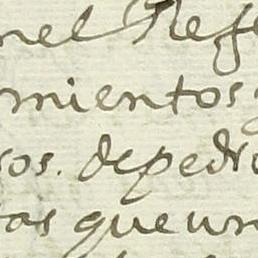 nel Ref
mientos
sos. de pedro
as que un